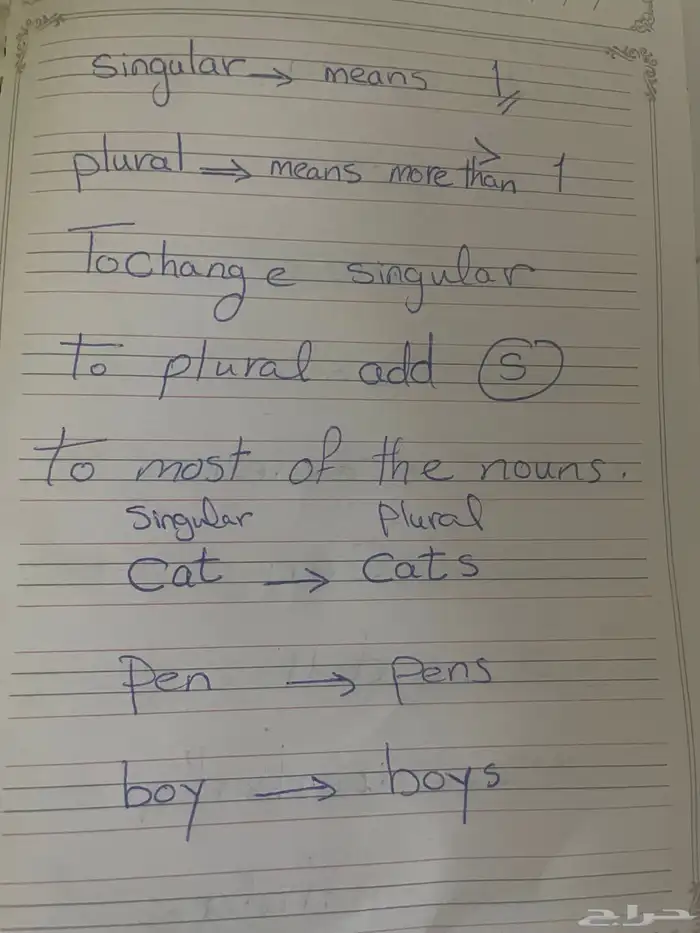 singular → means 1
plural ⇒ means more than > 1
To change singular
to plural add s
to most of the nouns.
Singular Plural
Cat → Cats
Pen → pens
boy → boys
حراج